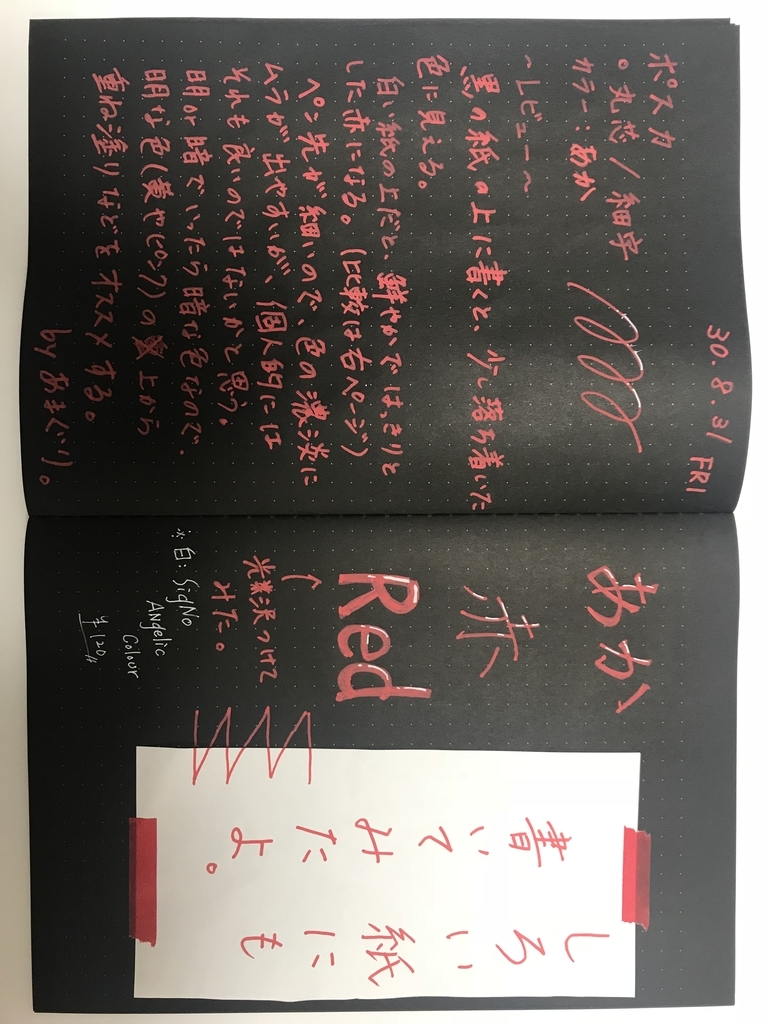 30.8.31 FRI
ポスカ
。丸芯/細字
カラー:あか
~レビュー~
黒の紙の上に書くと、少し落ち着いた
色に見える。
白い紙の上だと、鮮やかではっきりと
した赤になる。(比較は右ページ)
ペン先が細いので、色の濃淡に
ムラが出やすいが、個人的には
それも良いのではないかと思う。
明or暗でいったら暗な色なので、
明な色(黄やピンク)の上から
重ね塗りなどをオススメする。
by あまぐり。
あか
赤
Red
光沢つけて
みた。
※白: SigNo
Angelic
Colour
¥120
しろい紙にも
書いてみたよ。